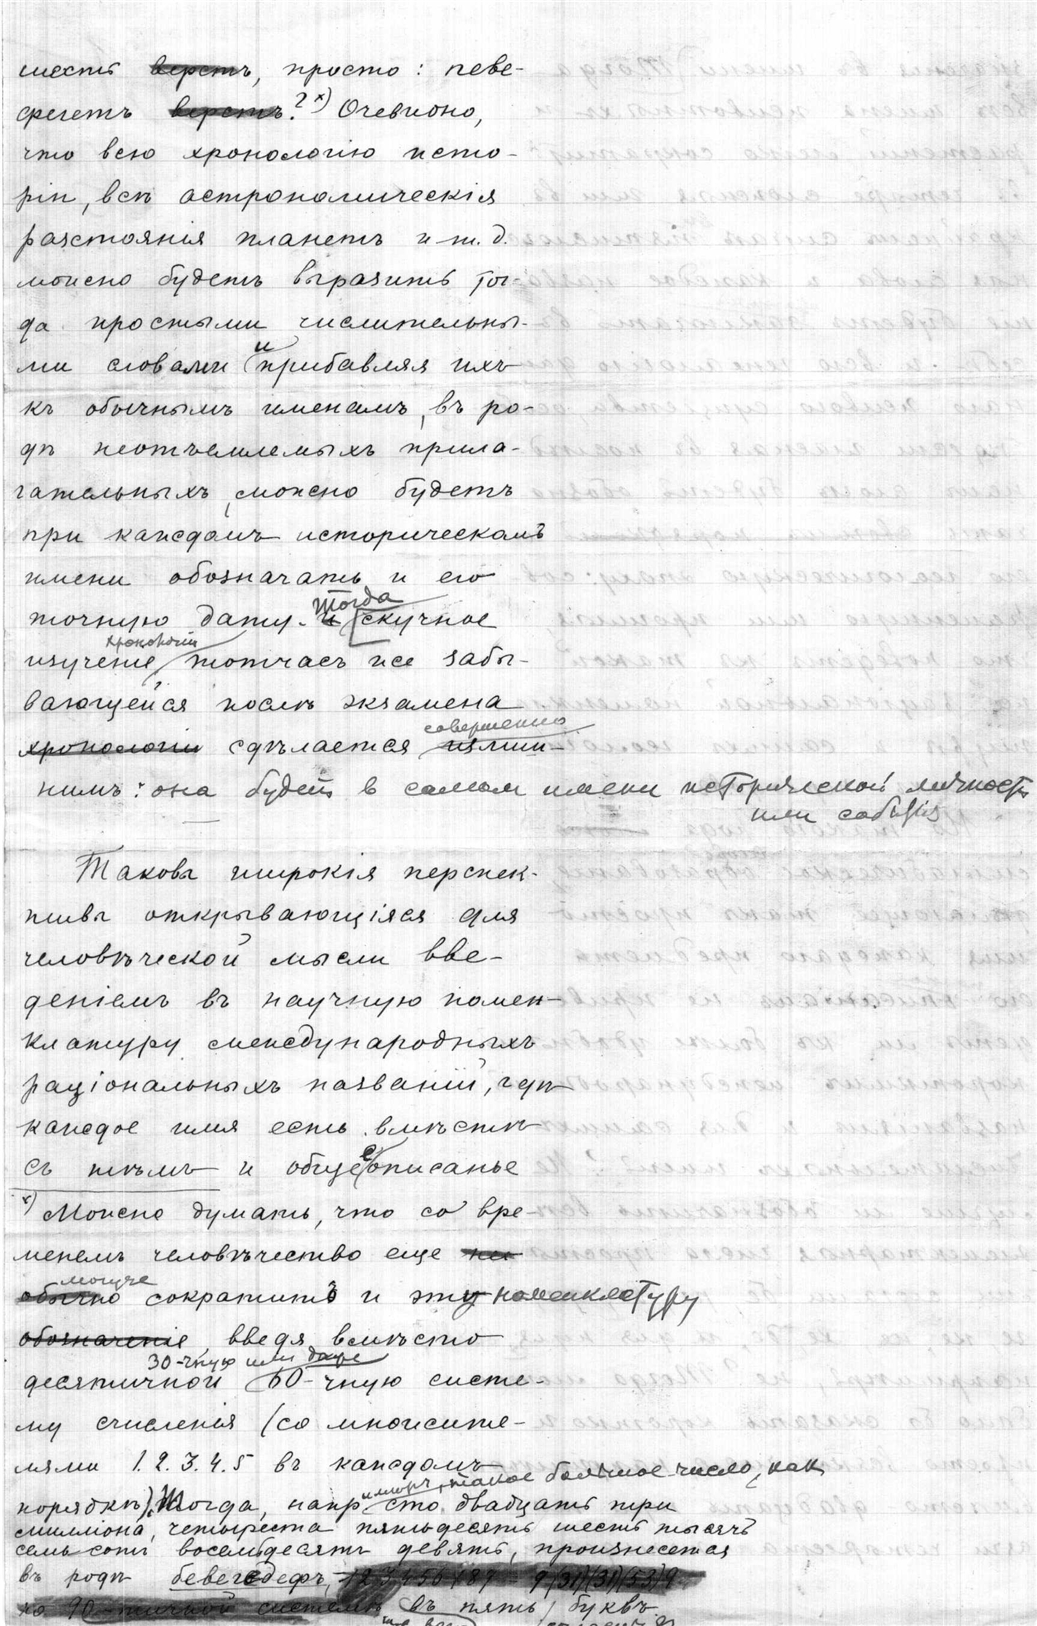 шесть верстъ, просто: певе-
фегетъ верстъ?ˣ⁾ Очевидно,
что всю хронологію исто-
ріи, всѣ астрономическія
разстоянія планетъ и т. д.
можно будетъ выразить тог-
да простыми числительны-
ми словами и прибавляя ихъ
къ обычнымъ именамъ, въ ро-
дѣ неотъемлемыхъ прила-
гательныхъ, можно будетъ
при каждомъ историческомъ
имени обозначать и его
точную дату. и Тогда скучное
изученіе хронологіи тотчасъ же забы-
вающейся послѣ экзамена
хронологіи сдѣлается совершенно излиш-
нимъ: она будетъ в самом имени исторической личности
или события
Таковы широкія перспек-
тивы открывающіяся для
человѣческой мысли вве-
деніемъ въ научную номен-
клатуру международныхъ
раціональныхъ названій, гдѣ
каждое имя есть вмѣстѣ
съ тѣмъ и общее описанье
ˣ⁾ Можно думать, что со вре-
менемъ человѣчество еще
могуче
обычно сократитъ и эту номенклатуру
обозначенія введя вмѣсто
30-чную или даже
десятичной 60-чную систе-
му счисленія (со множите-
лями 1.2.3.4.5 въ каждомъ
порядкѣ). Тогда, напр имѣръ, такое большое число, как сто двадцать три
милліона, четыреста пятьдесятъ шесть тысячъ
семьсотъ восемьдесятъ девять, произнесется
въ родѣ бевегедефъ, 123456789
по 90-тичной системѣ въ пять буквъ